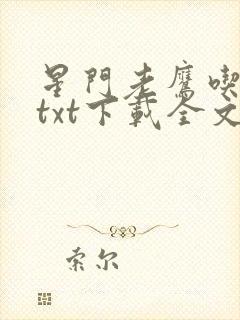 星門老鷹喫
txt下載全文
索尔